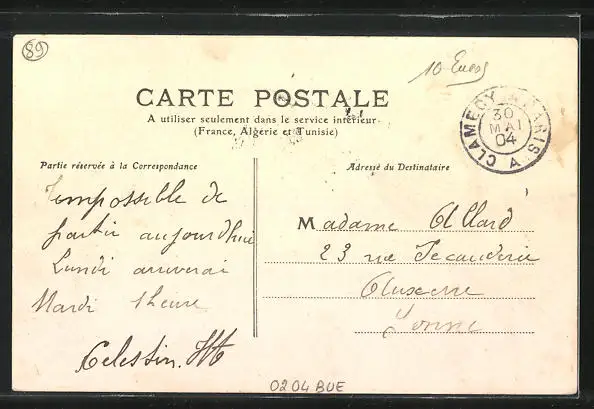 89
10 Euros
CARTE POSTALE
A utiliser seulement dans le service intérieur
(France, Algérie et Tunisie)
CLAMECY A PARIS
30
MAI
04
A
Partie réservée à la Correspondance
Impossible de
partir aujourdhui
Lundi arriverai
Mardi 1 heure
Celestin.
Adresse du Destinataire
Madame Allard
23 rue
Auxerre
Yonne
0204BUE